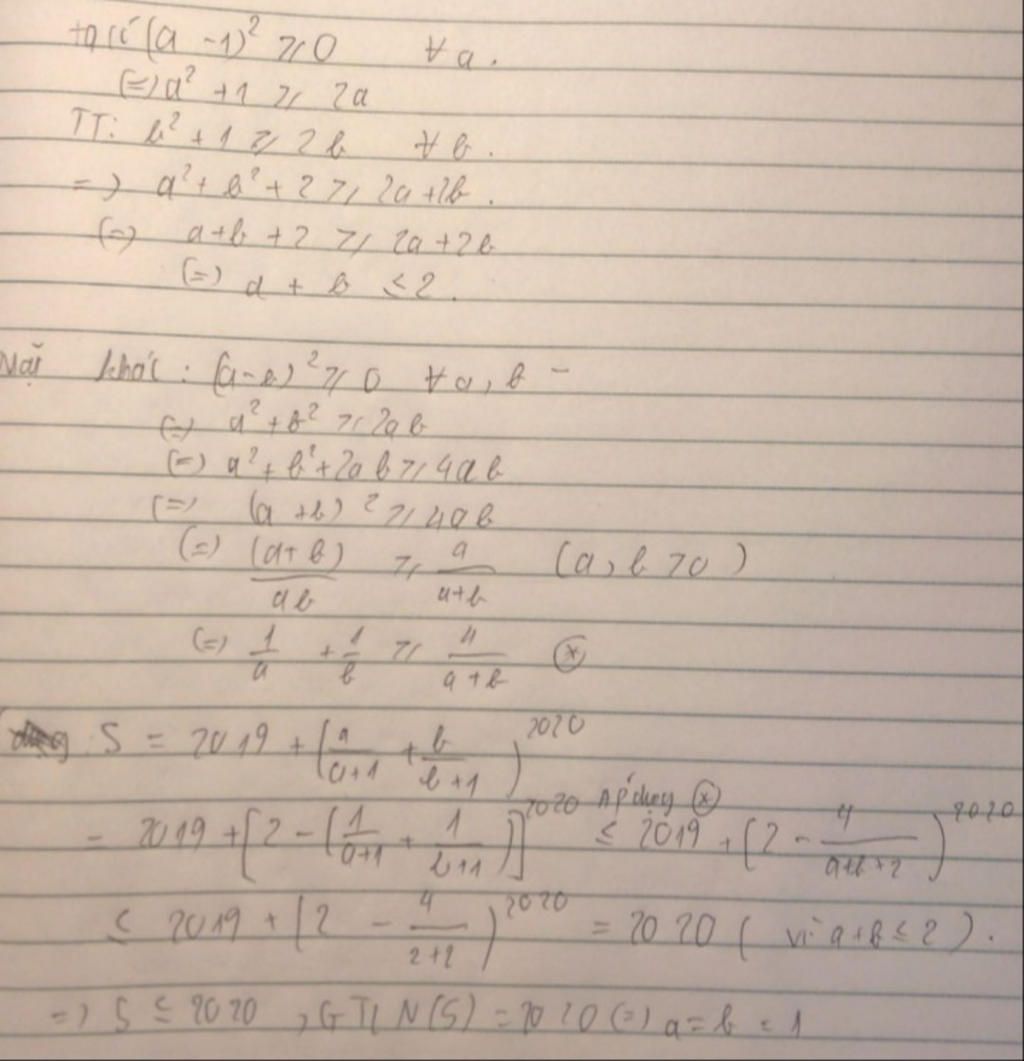 ta có (a - 1)² ≥ 0 ∀ a.
(=) a² + 1 ≥ 2a
TT: b² + 1 ≥ 2b ∀ b.
=) a² + b² + 2 ≥ 2a + 2b.
(=) a + b + 2 ≥ 2a + 2b
(=) a + b ≤ 2.
Mặt khác : (a - b)² ≥ 0 ∀ a, b
(=) a² + b² ≥ 2ab
(=) a² + b² + 2ab ≥ 4ab
(=) (a + b)² ≥ 4ab
(=) (a + b)/ab ≥ a/(a + b) (a, b > 0)
(=) 1/a + 1/b ≥ 4/(a + b) (*)
S = 2019 + (a/(a+1) + b/(b+1))²⁰²⁰
= 2019 + [2 - (1/(a+1) + 1/(b+1))]²⁰²⁰ Áp dụng (*) ≤ 2019 + (2 - 4/(a+b+2))²⁰²⁰
≤ 2019 + (2 - 4/(2+2))²⁰²⁰ = 2020 ( vì a + b ≤ 2 ).
=) S ≤ 2020 , GTLN(S) = 2020 (=) a = b = 1